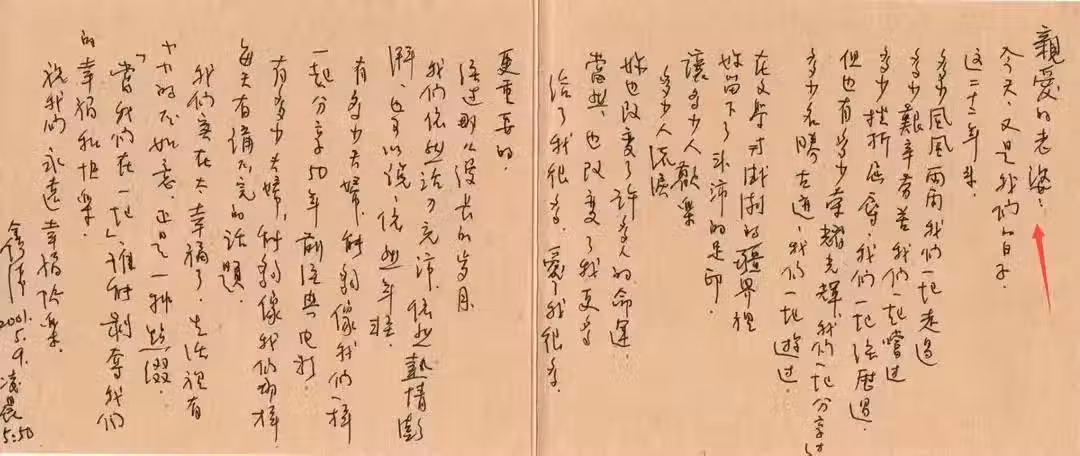 親愛的老婆：
今天，又是我們的日子，
這二十二年來
多少風風雨雨我們一地走過
多少艱辛苦苦我們一地嚐過
多少挫折屈辱，我們一地經歷過
但也有多少榮耀光輝，我們一地分享過
多少名勝古迹，我們一地遊過。
在文學对潮的疆界裡
妳留下了豐沛的足印
讓多少人歡樂
多少人流淚
妳也改變了許多人的命運
當然，也改變了我更多
給了我很多，愛我很多。
更重要的，
經過那么漫長的岁月，
我們依然活力充沛，依然熱情澎
湃，也可以說，依然年轻
有多少夫婦，能夠像我們一樣
一起分享50年前經典电影
有多少夫婦，能夠像我們那樣
每天有講不完的话題
我們實在太幸福了，生活裡有
小小的不如意，正是一种點綴
「當我們在一地」誰能剝奪我們
的幸福和快樂。
祝我們永遠幸福快樂。
鑫濤
2001.
5.9.
凌晨
5:50